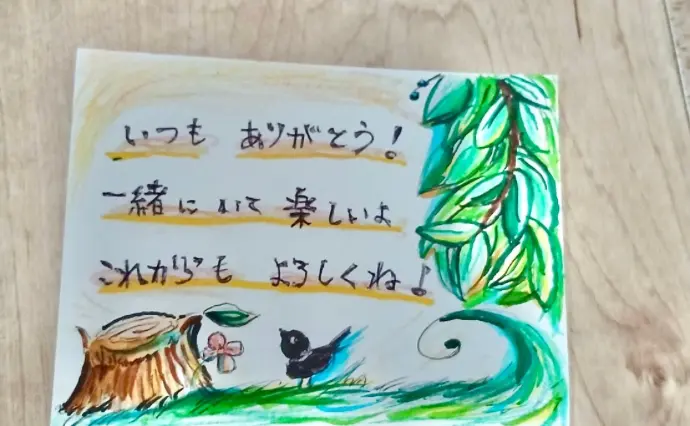 いつも ありがとう!
一緒に いて 楽しいよ
これからも よろしくねよ